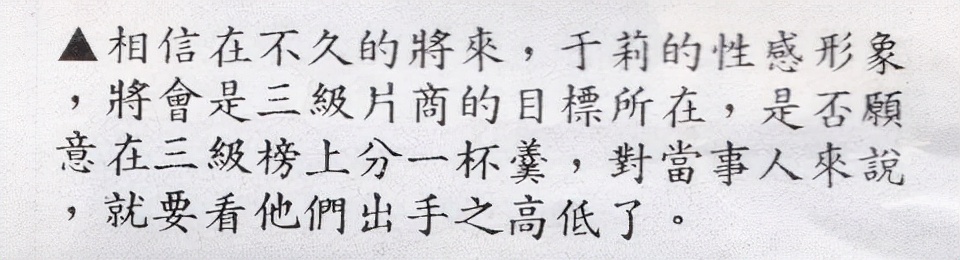 ▲相信在不久的將來，于莉的性感形象
，將會是三級片商的目標所在，是否願
意在三級榜上分一杯羹，對當事人來說
，就要看他們出手之高低了。